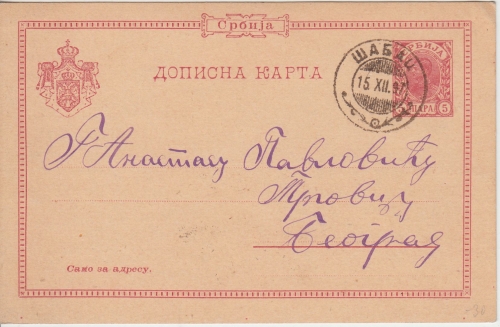 Србија
ДОПИСНА КАРТА
СРБИЈА
ПАРА 5
ШАБАЦ
15 XII. 97
Г Анастасу Павловићу
Трговцу
Београд
Само за адресу.